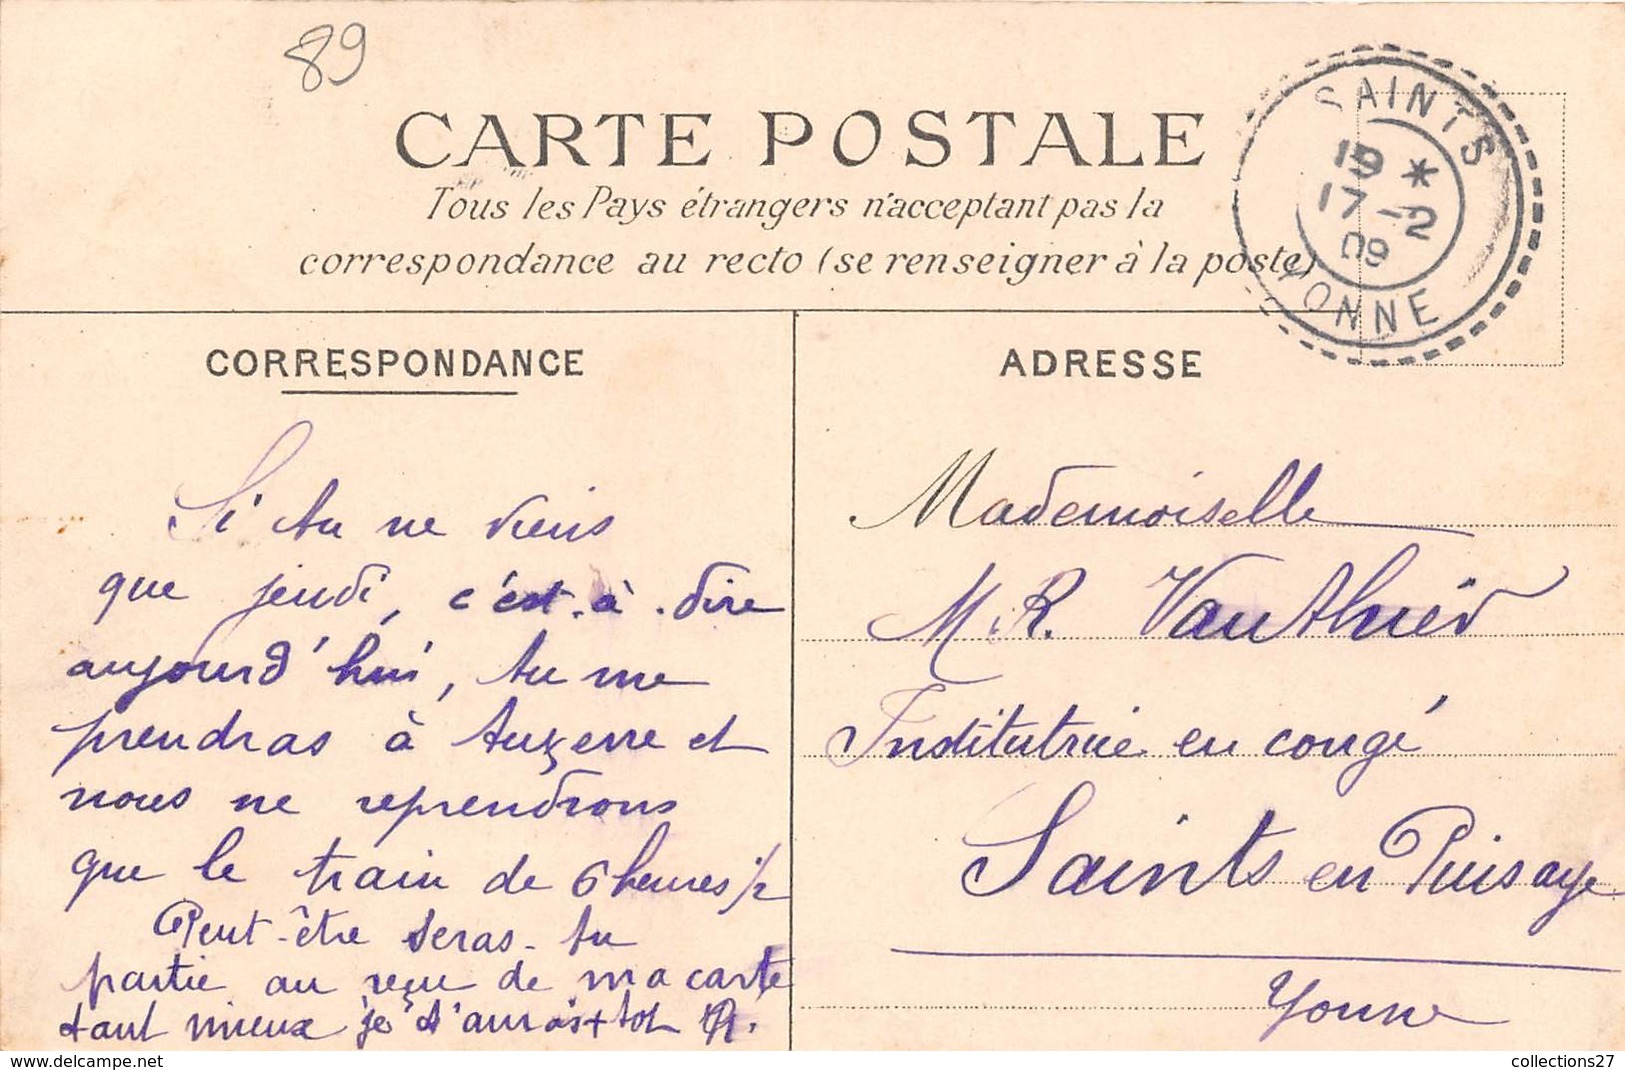 89
CARTE POSTALE
Tous les Pays étrangers n'acceptant pas la
correspondance au recto (se renseigner à la poste)
SAINTS
19 *
17 - 2
09
YONNE
CORRESPONDANCE
Si tu ne viens
que jeudi, c'est-à-dire
aujourd'hui, tu me
prendras à Auxerre et
nous ne reprendrons
que le train de 6 heures 1/2
Peut-être seras-tu
partie au reçu de ma carte
tant mieux je t'aurais + tôt
ADRESSE
Mademoiselle
M. R. Vauthier
Institutrice en congé
Saints en Puisaye
Yonne
collections27